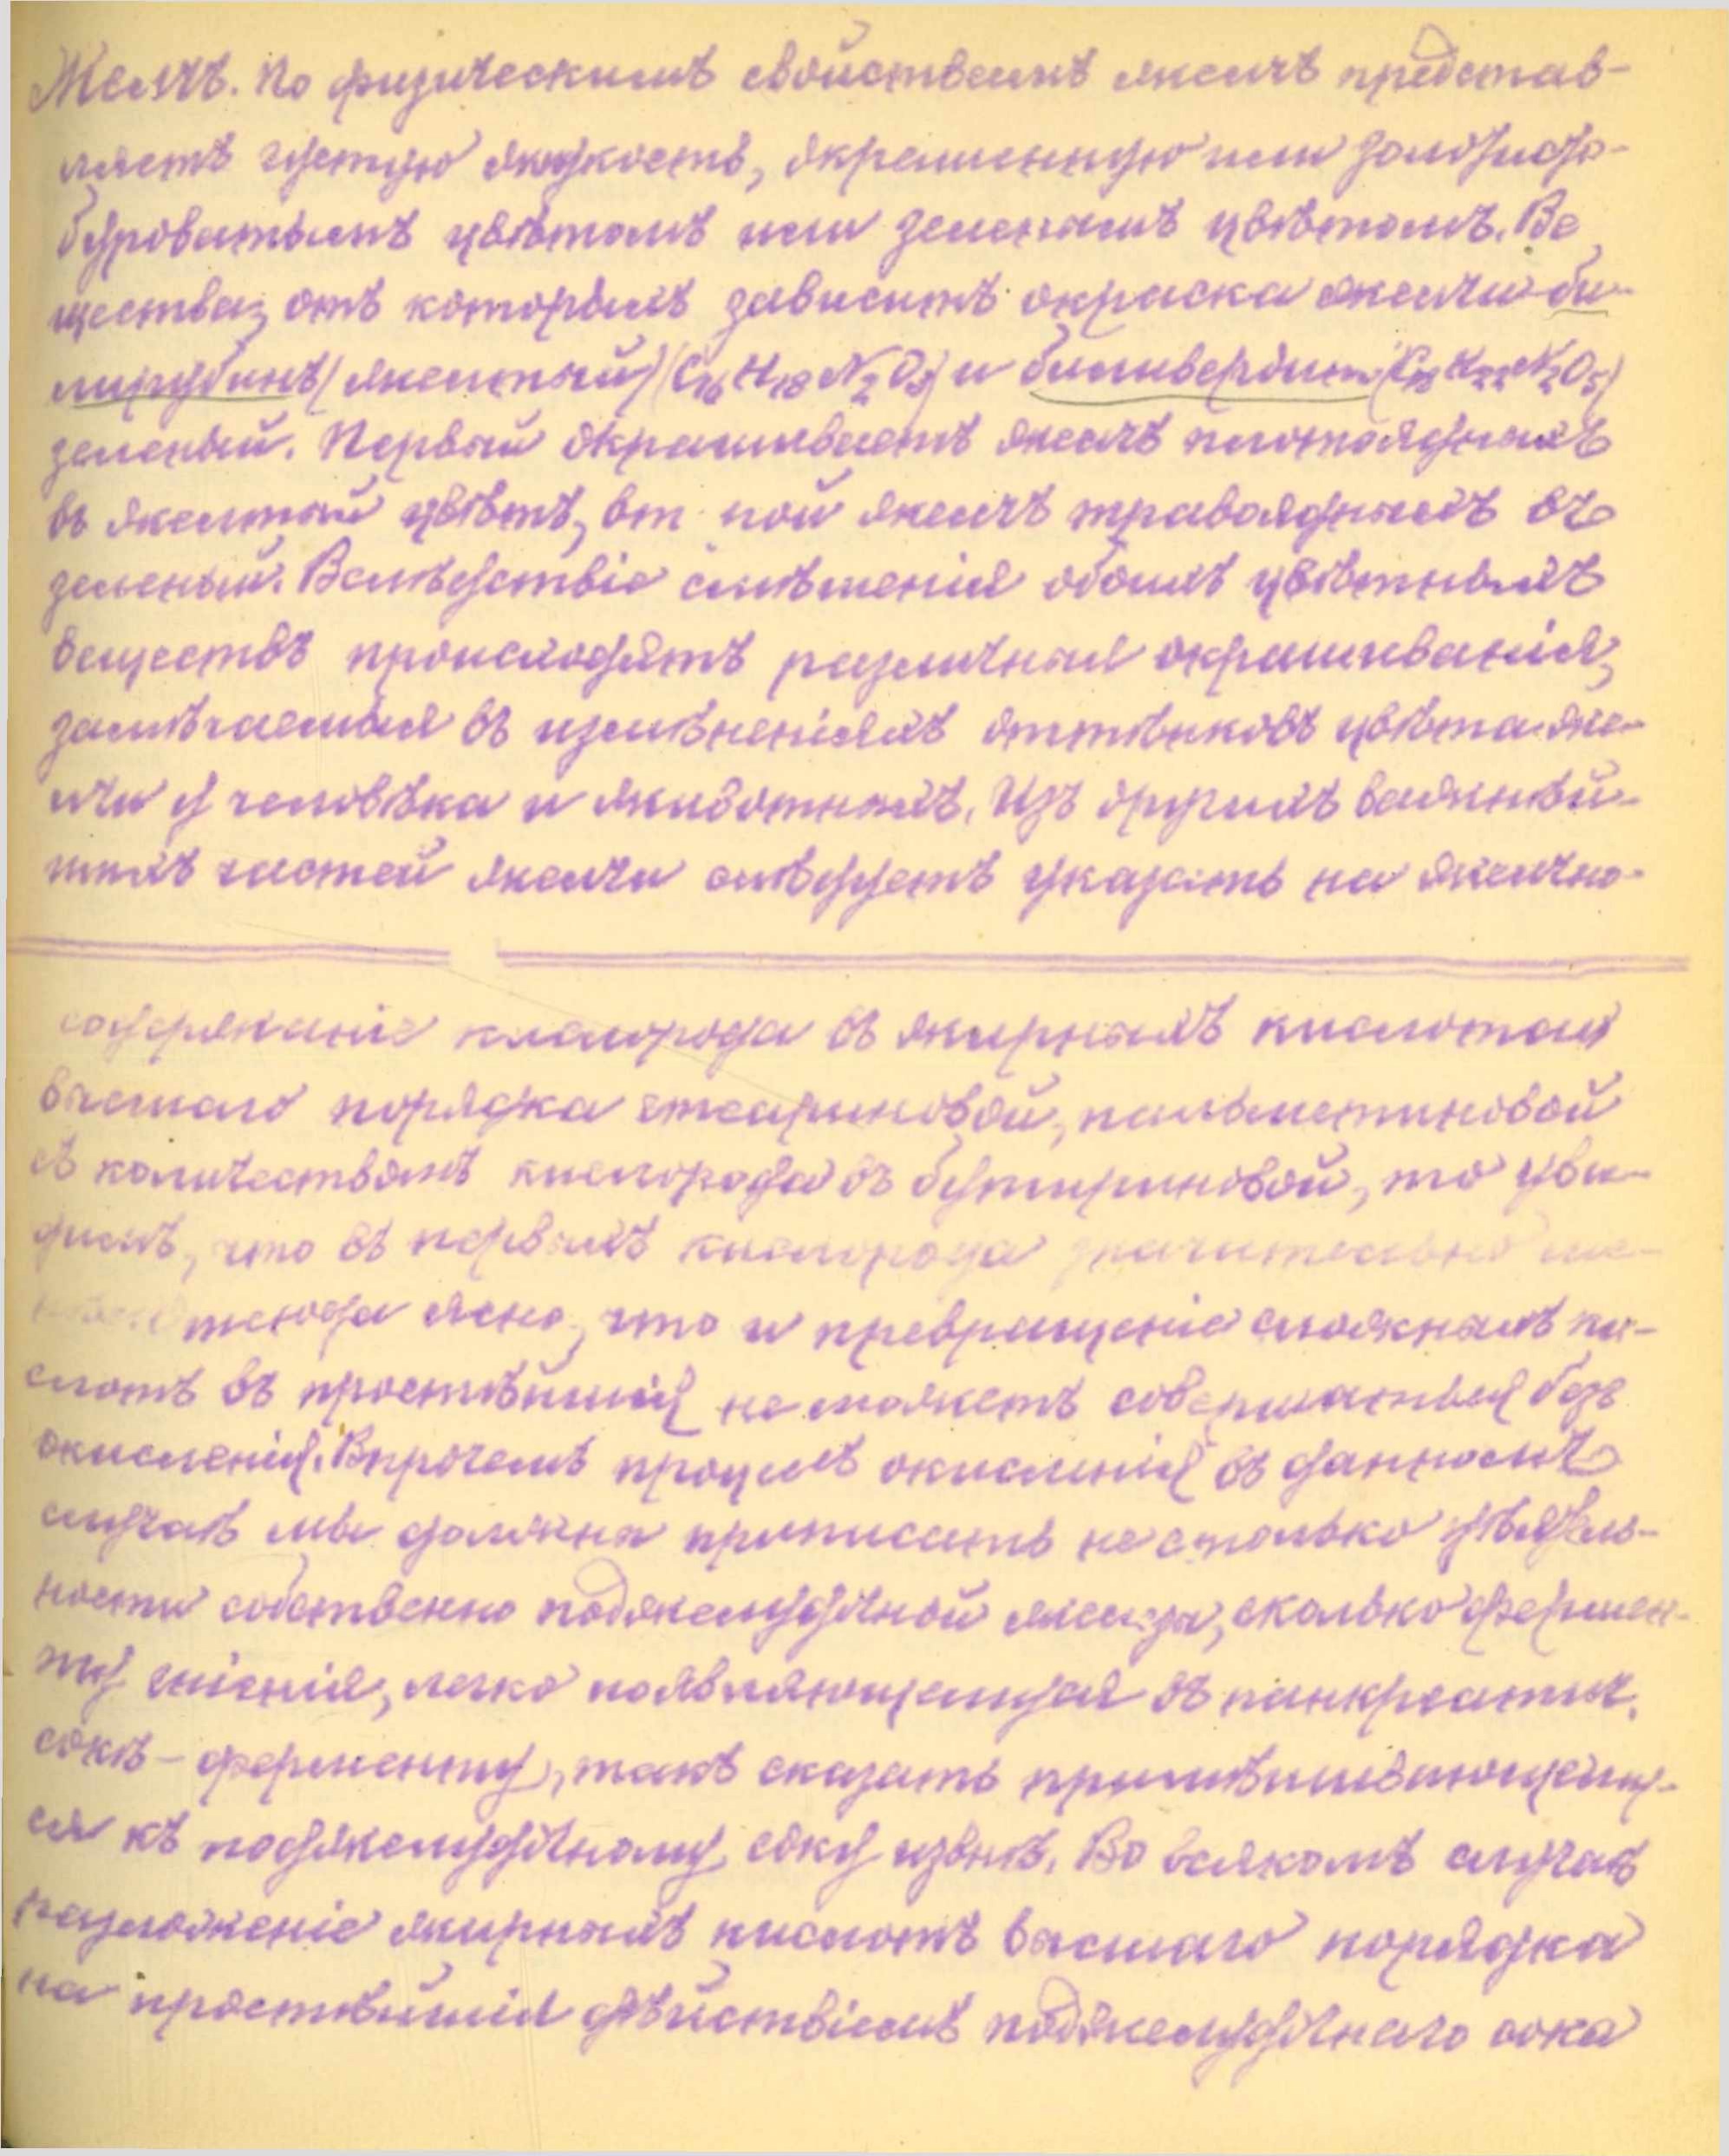 Желчь. По физическимъ свойствамъ желчь представ-
ляетъ густую жидкость, окрашенную или золотисто-
буроватымъ цвѣтомъ или зеленымъ цвѣтомъ. Ве
щества, отъ которыхъ зависитъ окраска желчи би-
лирубинъ (желтый) (C16H18N2O3) и биливердинъ (C H22N2O5)
зеленый. Первый окрашиваетъ желчь плотоядныхъ
въ желтый цвѣтъ, вт рой желчь травоядныхъ въ
зеленый. Вслѣдствіе смѣшенія обоихъ цвѣтныхъ
веществъ происходятъ различныя окрашиванія,
замѣчаемыя въ измѣненіяхъ оттѣнковъ цвѣта же-
лчи у человѣка и животныхъ. Изъ другихъ важнѣй-
шихъ частей желчи слѣдуетъ указать на желчно-
содержаніе кислорода въ жирныхъ кислотахъ
высшаго порядка стеариновой, пальметиновой
съ количествомъ кислорода въ бутириновой, то уви-
димъ, что въ первыхъ кислорода значительно ме-
тсюда ясно, что и превращеніе сложныхъ ки-
слотъ въ простѣйшія не можетъ совершаться безъ
окисленія. Впрочемъ процесъ окисленія въ данномъ
случаѣ мы должны приписать не столько дѣятель-
ности собственно поджелудочной железы, сколько фермен-
ту гніенія, легко появляющемуся въ панкреатич.
сокѣ - ферменту, такъ сказать примѣшивающему-
ся къ поджелудочному соку извнѣ. Во всякомъ случаѣ
разложеніе жирныхъ кислотъ высшаго порядка
на простѣйшія дѣйствіемъ поджелудочнаго сока